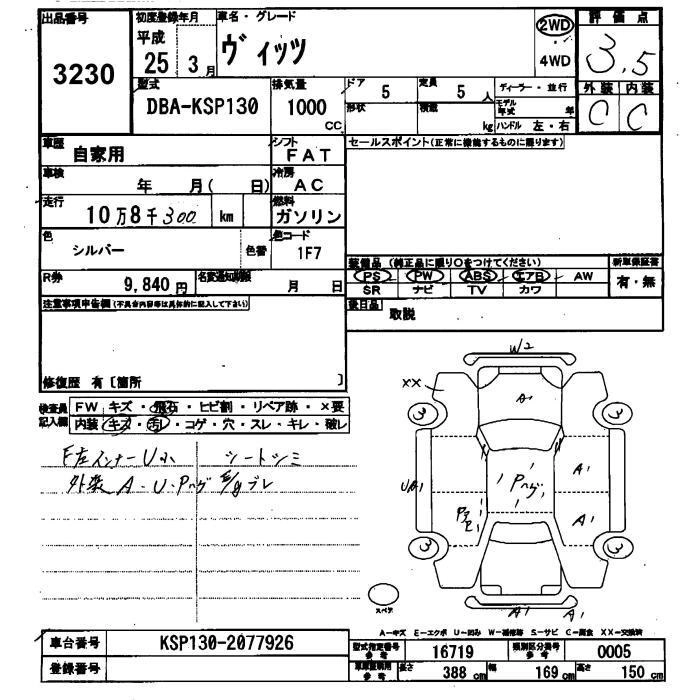 出品番号
3230
初度登録年月
平成
25 3月
車名・グレード
ヴィッツ
2WD
4WD
評価点
3.5
外装 内装
C C
型式
DBA-KSP130
排気量
1000
CC
ドア 5
定員 5 人
ディーラー・並行
形状
積載
kg
モデル年式 年
ハンドル 左・右
車歴
自家用
シフト
FAT
セールスポイント(正常に機能するものに限ります)
車検
年 月( 日)
冷房
AC
走行
10万8千300 km
燃料
ガソリン
色
シルバー
色替
色コード
1F7
装備品 (純正品に限り○をつけてください)
新車保証書
PS PW ABS エアB AW
SR ナビ TV カワ
有・無
R券
9,840円
名変通知期限
月 日
後日品
取説
注意事項申告欄(不具合内容等は具体的に記入して下さい)
修復歴 有〔箇所 〕
検査員
記入欄
FW キズ・飛石・ヒビ割・リペア跡・×要
内装 キズ・汚れ・コゲ・穴・スレ・キレ・破レ
F左インナーU小 シートシミ
外装 A・U・Pハゲ E/gブレ
W2
XX
A1
3
3
UA1
Pハゲ
A1
A1
3
3
A1
A1
スペア
A-キズ E-エクボ U-凹み W-補修跡 S-サビ C-腐食 XX-交換済
車台番号
KSP130-2077926
登録番号
型式指定番号
参考
16719
類別区分番号
参考
0005
車車証明用
参考
長さ 388 cm
幅 169 cm
高さ 150 cm